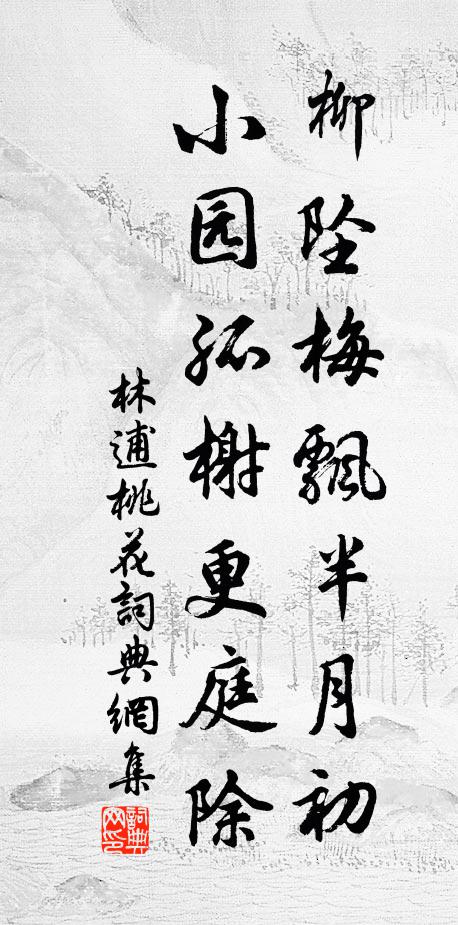 柳坠梅飘半月初
小园孤榭更庭除
林逋桃花詞典網集
詞典网印